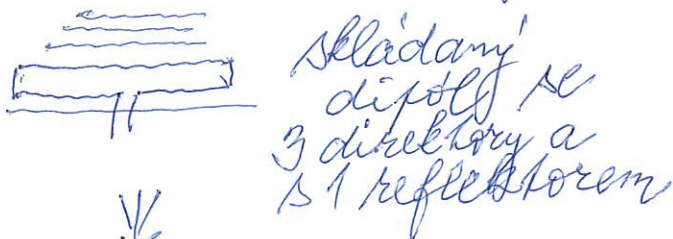 skládaný
dipól se
3 direktory a
s 1 reflektorem